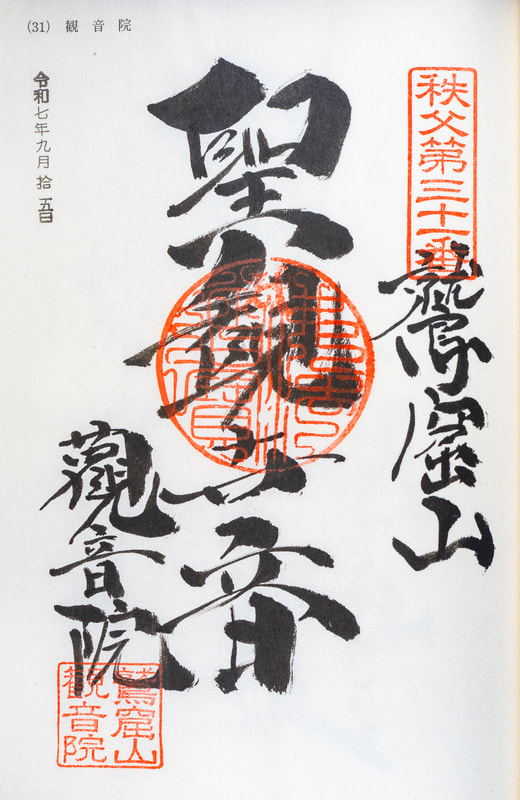 (31) 観音院
令和七年九月拾五日
秩父第三十一番
鷲窟山
聖観世音
觀音院
鷲窟山
観音院